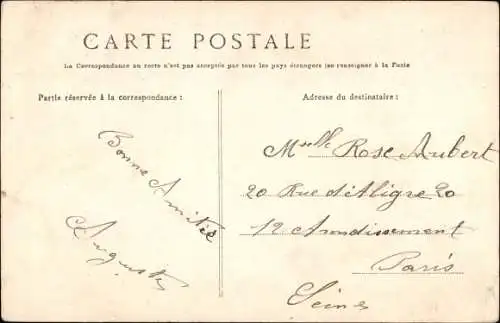 CARTE POSTALE
La Correspondance au recto n'est pas acceptée par tous les pays étrangers (se renseigner à la Poste
Partie réservée à la correspondance :
Adresse du destinataire :
Bonne Amitié
Auguste
Mselle Rose Aubert
20 Rue d'Aligre 20
12 Arondissement
Paris
Seine